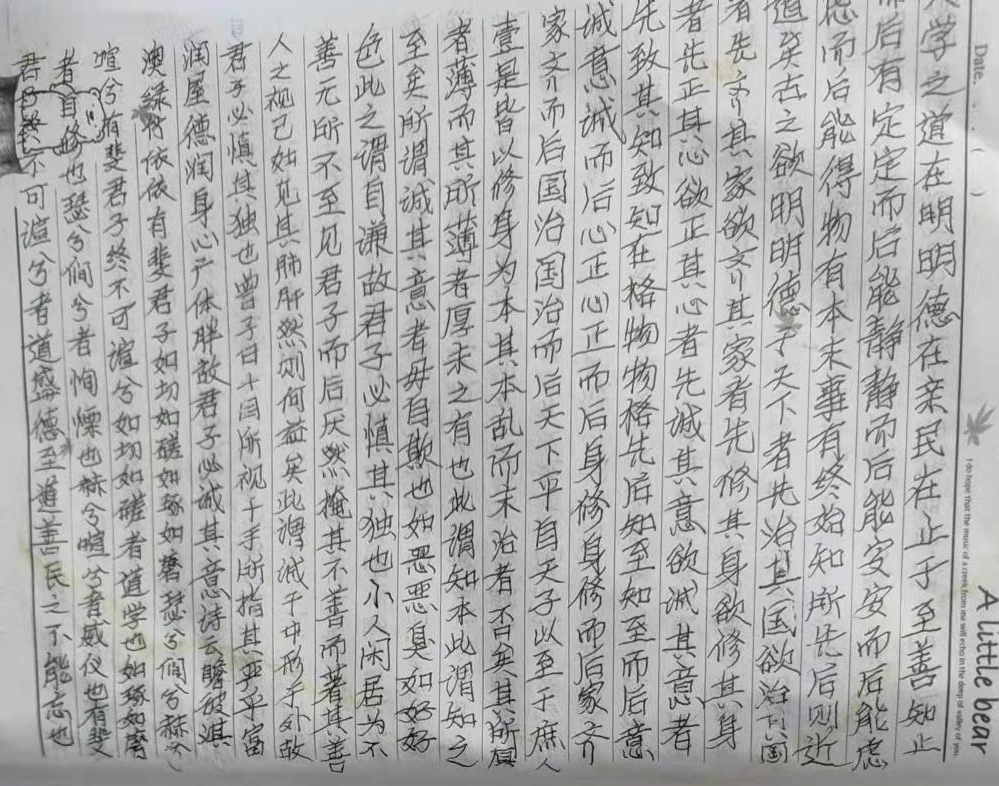 大学之道在明明德在亲民在止于至善知止
而后有定定而后能静静而后能安安而后能虑
虑而后能得物有本末事有终始知所先后则近
道矣古之欲明明德于天下者先治其国欲治其国
者先齐其家欲齐其家者先修其身欲修其身
者先正其心欲正其心者先诚其意欲诚其意者
先致其知致知在格物物格先后知至知至而后意
诚意诚而后心正心正而后身修身修而后家齐
家齐而后国治国治而后天下平自天子以至于庶人
壹是皆以修身为本其本乱而末治者否矣其所厚
者薄而其所薄者厚未之有也此谓知本此谓知之
至矣所谓诚其意者毋自欺也如恶恶臭如好好
色此之谓自谦故君子必慎其独也小人闲居为不
善无所不至见君子而后厌然掩其不善而著其善
人之视己如见其肺肝然则何益矣此谓诚于中形于外故
君子必慎其独也曾子曰十目所视十手所指其严乎富
润屋德润身心广体胖故君子必诚其意诗云瞻彼淇
澳绿竹依依有斐君子如切如磋如琢如磨瑟兮僩兮赫兮
喧兮有斐君子终不可谊兮如切如磋者道学也如琢如磨
者自修也瑟兮僩兮者恂慄也赫兮喧兮者威仪也有斐
君子终不可谊兮者道盛德至道善民之不能忘也
Date. ( )
I do hope that the music of a creek from me will echo in the deep of valley of you.
A little bear